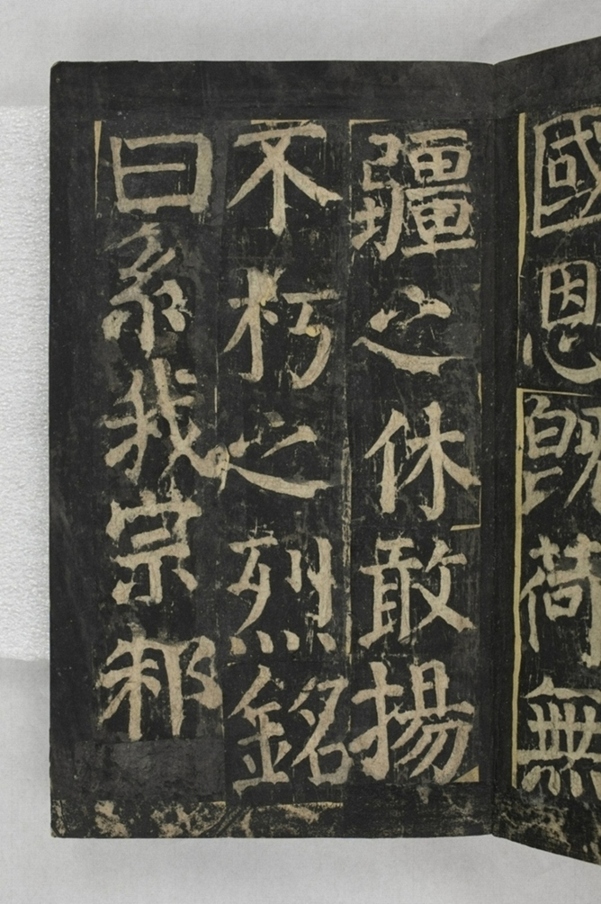 國恩旣荷無
疆之休敢揚
不朽之烈銘
曰系我宗邾